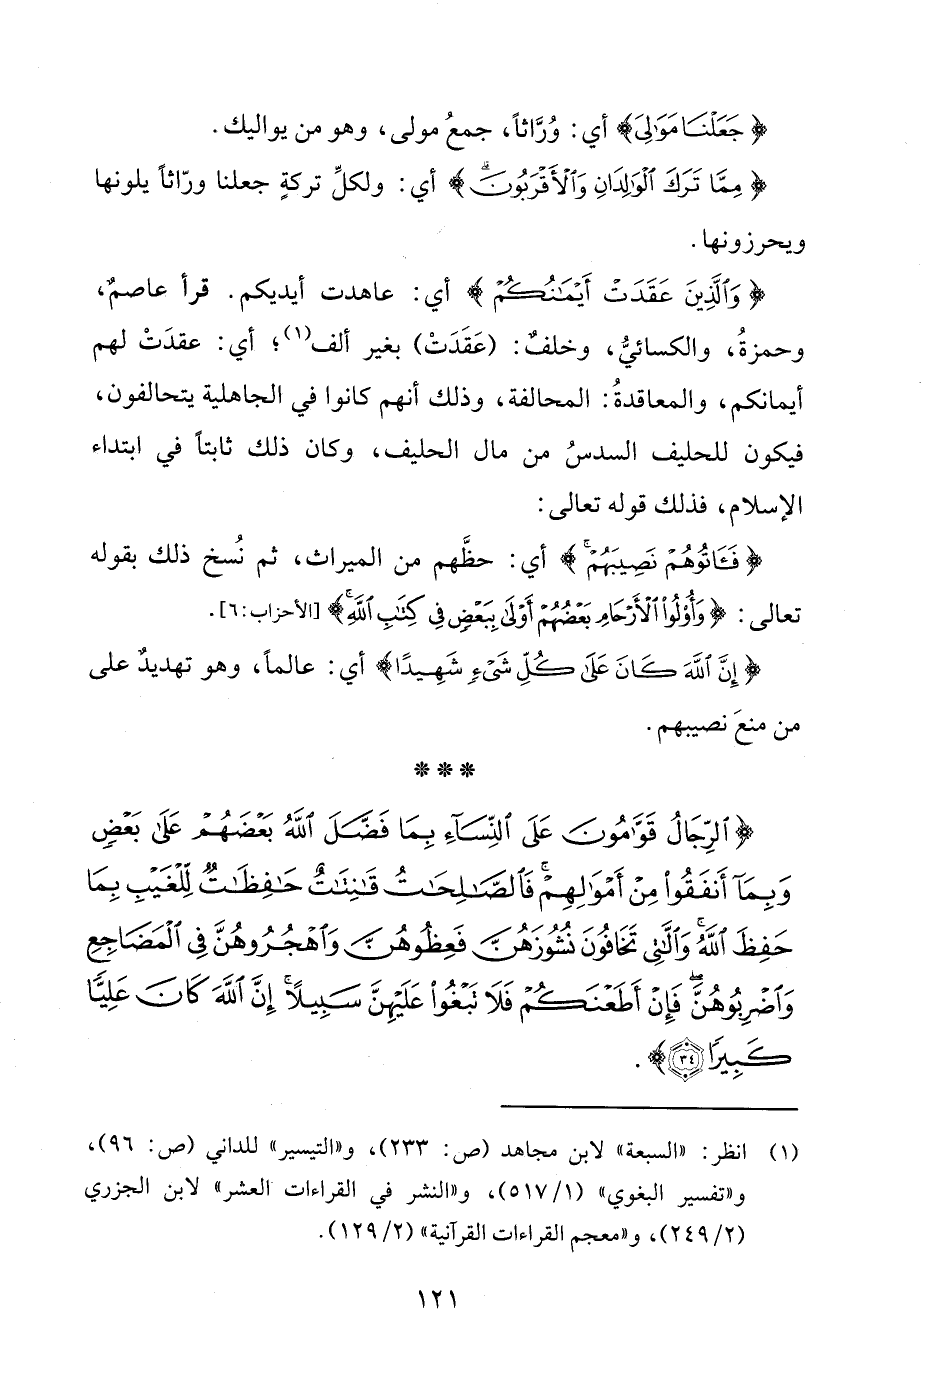 ﴿ جَعَلْنَا مَوَٰلِىَ﴾ أي: وُرَّاثاً، جمعُ مولى، وهو من يواليك.
﴿ مِمَّا تَرَكَ ٱلْوَٰلِدَانِ وَٱلْأَقْرَبُونَۗ ﴾ أي: ولكلِّ تركةٍ جعلنا ورّاثاً يلونها
ويحرزونها.
﴿ وَٱلَّذِينَ عَقَدَتْ أَيْمَٰنُكُمْ ﴾ أي: عاهدت أيديكم. قرأ عاصمٌ،
وحمزةُ، والكسائيُّ، وخلفٌ: (عَقَدَتْ) بغير ألف(١)؛ أي: عقدَتْ لهم
أيمانكم، والمعاقدةُ: المحالفة، وذلك أنهم كانوا في الجاهلية يتحالفون،
فيكون للحليف السدسُ من مال الحليف، وكان ذلك ثابتاً في ابتداء
الإسلام، فذلك قوله تعالى:
﴿ فَـَٔاتُوهُمْ نَصِيبَهُمْۚ ﴾ أي: حظَّهم من الميراث، ثم نُسخ ذلك بقوله
تعالى: ﴿ وَأُوْلُواْ ٱلْأَرْحَامِ بَعْضُهُمْ أَوْلَىٰ بِبَعْضٍ فِى كِتَٰبِ ٱللَّهِۚ﴾ [الأحزاب: ٦].
﴿ إِنَّ ٱللَّهَ كَانَ عَلَىٰ كُلِّ شَىْءٍ شَهِيدًا﴾ أي: عالماً، وهو تهديدٌ على
من منعَ نصيبهم.
* * *
﴿ ٱلرِّجَالُ قَوَّٰمُونَ عَلَى ٱلنِّسَآءِ بِمَا فَضَّلَ ٱللَّهُ بَعْضَهُمْ عَلَىٰ بَعْضٍ
وَبِمَآ أَنفَقُواْ مِنْ أَمْوَٰلِهِمْۚ فَٱلصَّٰلِحَٰتُ قَٰنِتَٰتٌ حَٰفِظَٰتٌ لِّلْغَيْبِ بِمَا
حَفِظَ ٱللَّهُۚ وَٱلَّٰتِى تَخَافُونَ نُشُوزَهُنَّ فَعِظُوهُنَّ وَٱهْجُرُوهُنَّ فِى ٱلْمَضَاجِعِ
وَٱضْرِبُوهُنَّۖ فَإِنْ أَطَعْنَكُمْ فَلَا تَبْغُواْ عَلَيْهِنَّ سَبِيلًاۗ إِنَّ ٱللَّهَ كَانَ عَلِيًّا
كَبِيرًا ٣٤﴾.
(١) انظر: «السبعة» لابن مجاهد (ص: ٢٣٣)، و«التيسير» للداني (ص: ٩٦)،
و«تفسير البغوي» (٥١٧/١)، و«النشر في القراءات العشر» لابن الجزري
(٢٤٩/٢)، و«معجم القراءات القرآنية» (١٢٩/٢).
١٢١